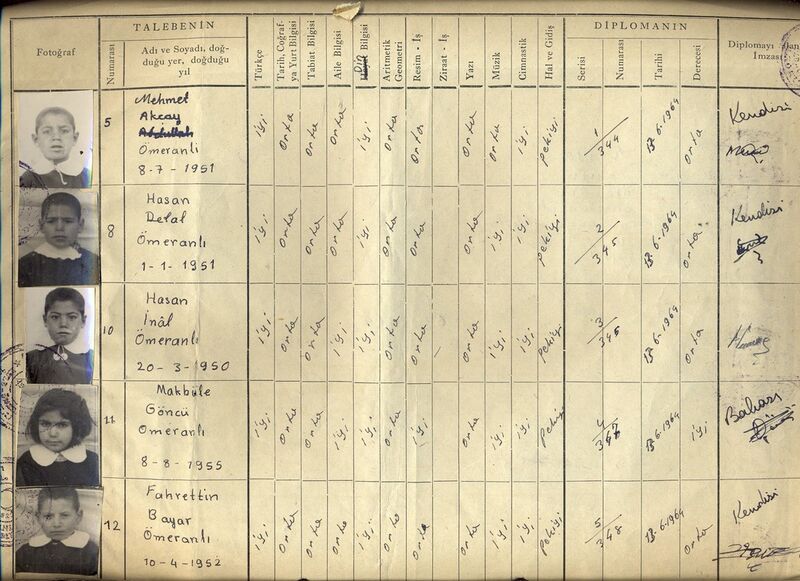 TALEBENİN
DİPLOMANIN
Fotoğraf
Numarası
Adı ve Soyadı, doğ-
duğu yer, doğduğu
yıl
Türkçe
Tarih, Coğraf-
ya Yurt Bilgisi
Tabiat Bilgisi
Aile Bilgisi
Din Bilgisi
Aritmetik
Geometri
Resim - İş
Ziraat - İş
Yazı
Müzik
Cimnastik
Hal ve Gidiş
Serisi
Numarası
Tarihi
Derecesi
Diplomayı
İmzası
5
Mehmet
Akçay
Abdullah
Ömeranlı
8-7-1951
iyi Orta Orta Orta iyi Orta Orta Orta Orta iyi Pekiyi
1/344
13-6-1964
Orta
Kendisi
8
Hasan
Delal
Ömeranlı
1-1-1951
iyi Orta Orta Orta iyi Orta Orta Orta iyi iyi Pekiyi
2/345
13-6-1964
Orta
Kendisi
10
Hasan
İnâl
Ömeranlı
20-3-1950
iyi Orta Orta iyi iyi Orta Orta Orta iyi iyi Pekiyi
3/346
13-6-1964
Orta
11
Makbüle
Göncü
Ömeranlı
8-8-1955
iyi Orta Orta iyi iyi Orta iyi Orta iyi iyi Pekiyi
4/347
13-6-1964
iyi
Babası
12
Fahrettin
Bayar
Ömeranlı
10-4-1952
iyi Orta Orta Orta iyi Orta Orta Orta iyi iyi Pekiyi
5/348
13-6-1964
Orta
Kendisi